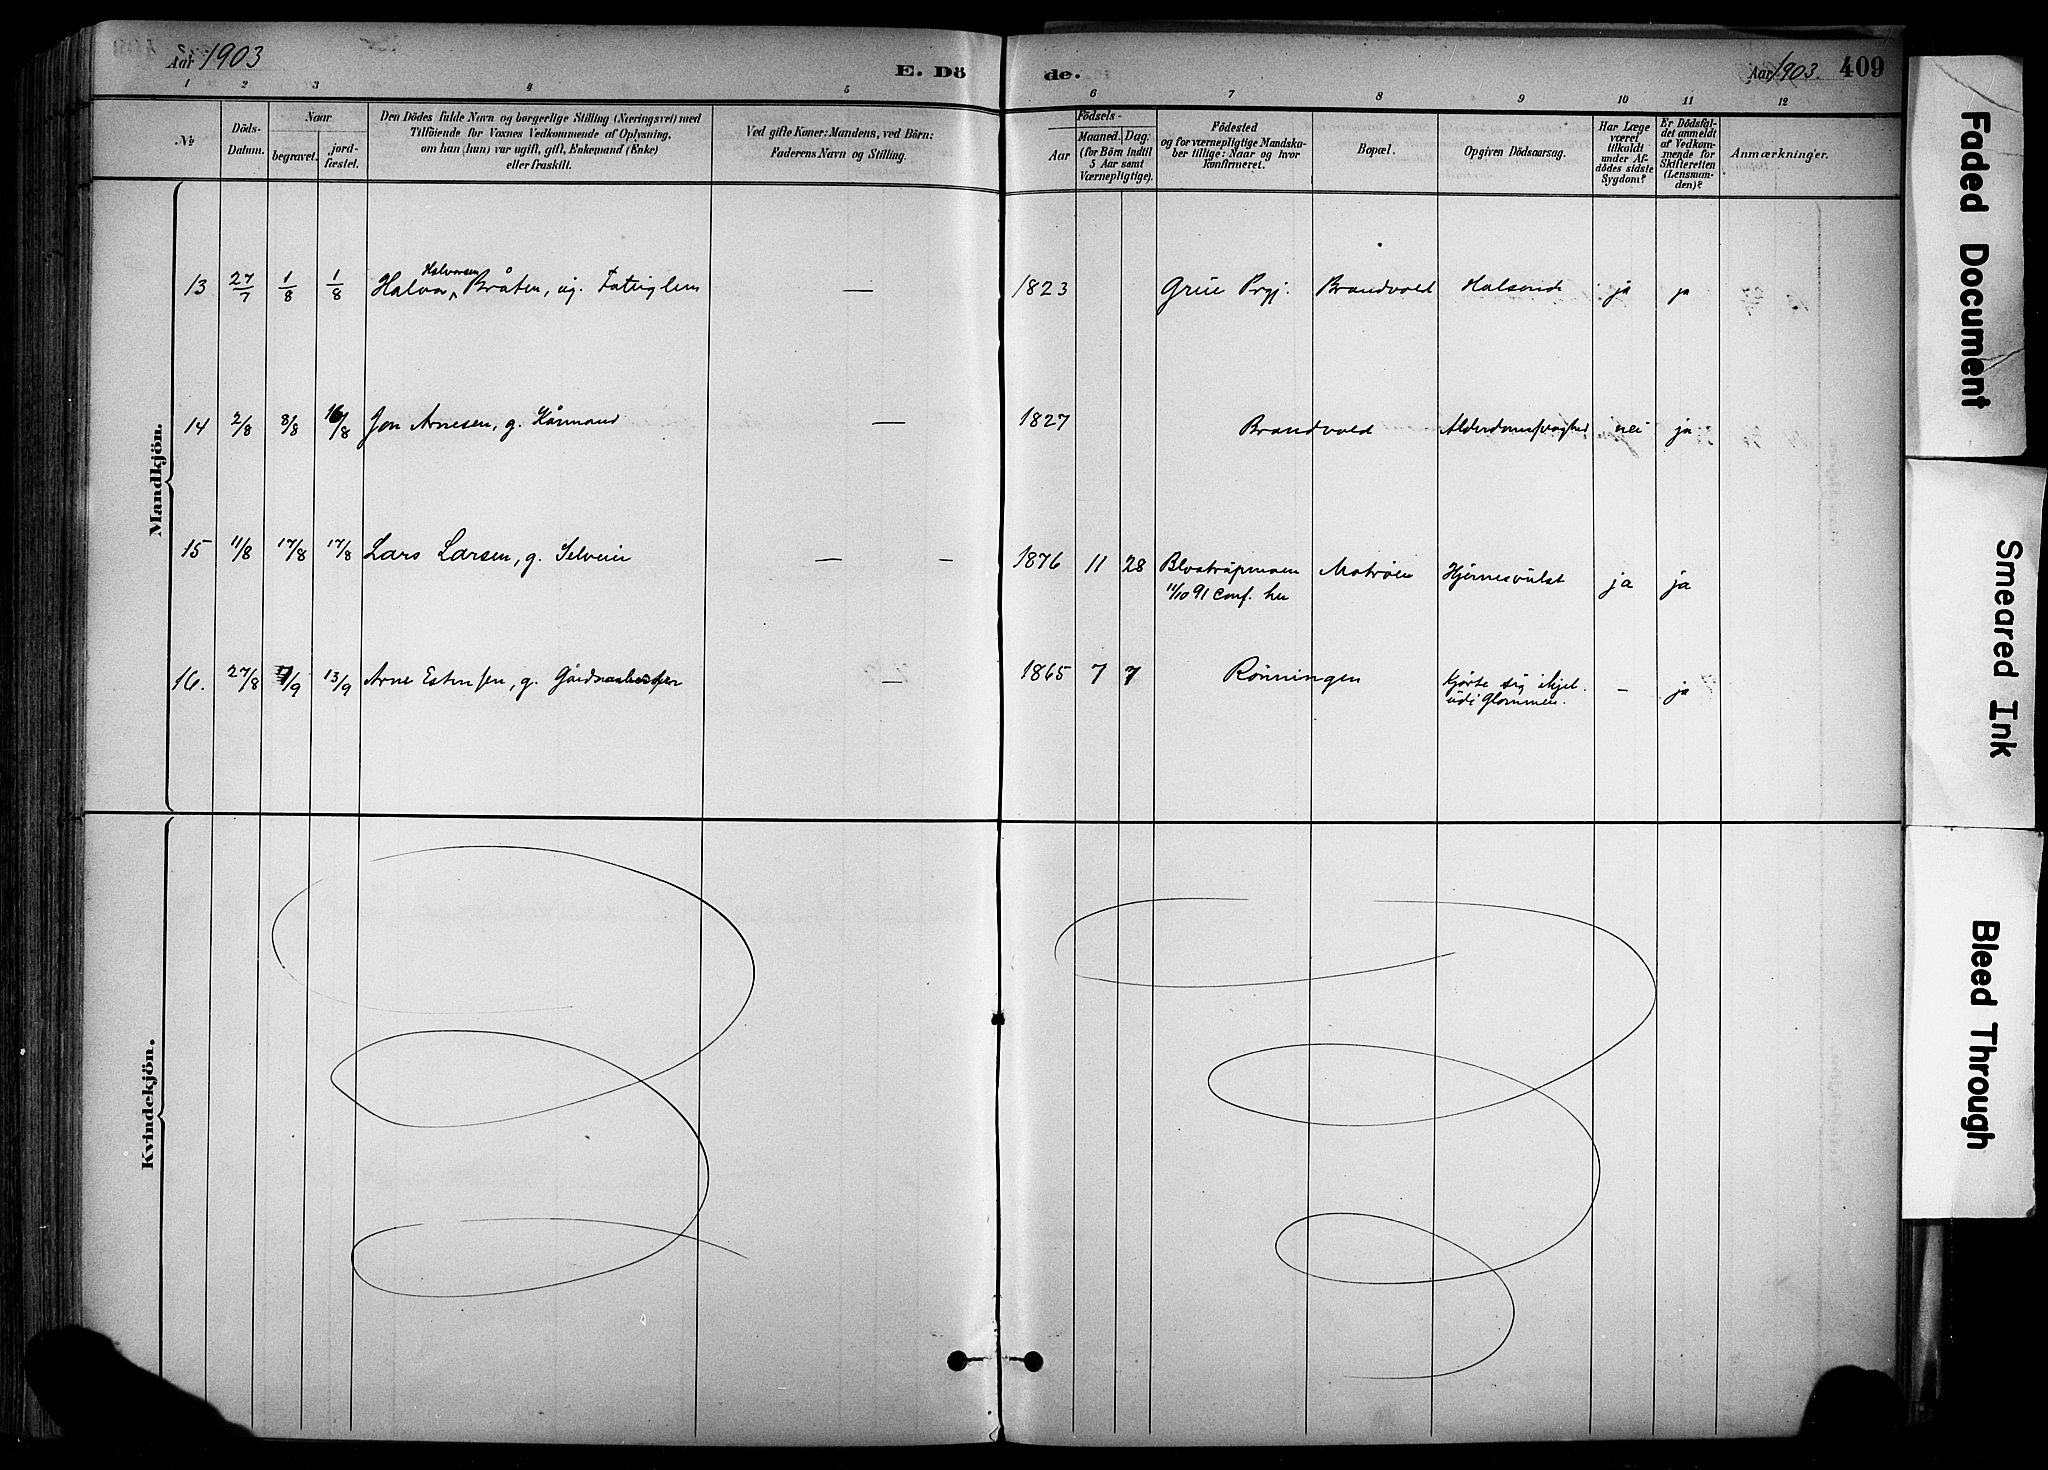 Aar 1903
E. Dö
de.
Aar 1903. 409
1 2 3 4 5 6 7 8 9 10 11 12
№
Döds-
Datum.
Naar
begravet.
jord-
fæstet.
Den Dödes fulde Navn og borgerlige Stilling (Næringsvei) med
Tilföiende for Voxnes Vedkommende af Oplysning,
om han (hun) var ugift, gift, Enkemand (Enke)
eller fraskilt.
Ved gifte Koner: Mandens, ved Börn:
Faderens Navn og Stilling.
Födsels-
Aar
Maaned. Dag.
(for Börn indtil
5 Aar samt
Værnepligtige).
Födested
og for værnepligtige Mandska-
ber tillige: Naar og hvor
konfirmeret.
Bopæl.
Opgiven Dödsaarsag.
Har Læge
været
tilkaldt
under Af-
dödes sidste
Sygdom?
Er Dödsfal-
det anmeldt
af Vedkom-
mende for
Skifteretten
(Lensman-
den)?
Anmærkninger.
Mandkjön.
Halvorsen
13 27/7 1/8 1/8 Halvor Bråten, ug. Fatiglem — 1823 Grue Prgj. Brandvold Halsond ja ja
14 2/8 8/8 16/8 Jon Arnesen, g. Kårmand — 1827 Brandvold nei ja
15 11/8 17/8 17/8 Lars Larsen, g. Selveier — — 1876 11 28 Matrøen Hjernesvulst ja ja
11/10 91 conf. her
16. 27/8 7/9 13/9 Arne Estensen, g. — 1865 7 7 Rønningen kjørte sig ihjel — ja
udi Glommen.
Kvindekjön.
Faded Document
Smeared Ink
Bleed Through